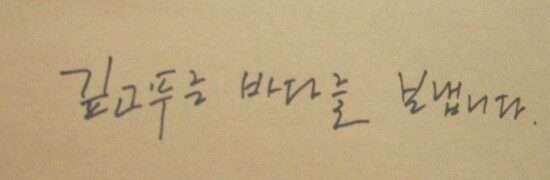 깊고푸른 바다를 보냅니다.